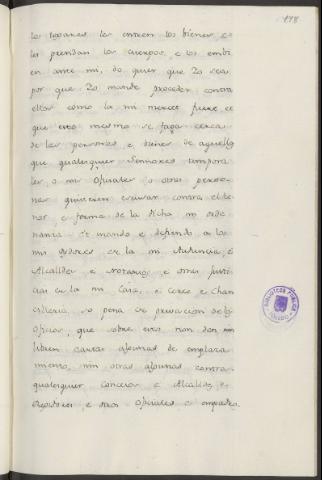 178
los logares les entren los bienes e
les prendan los cuerpos, e los embi
en ante mi, do quier que Yo sea
por que Yo mande proceder contra
ellos como la mi merced fuere e
que eso mesmo se faga cerca
de las personas e bienes de aquellos
que qualesquier Sennores tempora
les, o mis oficiales o otras perso
nas quisieren contra el te
nor e forma de la dicha mi orde
nanza e mando e defiendo a los
mis oydores en la mi Audiencia, e
Alcalldes e Notarios e otras justi
cias en la mi Casa, e Corte e Chan
cilleria so pena de privacion de los
oficios, que sobre esto non den nin
libren cartas algunas de emplaza
miento, nin otras algunas contra
qualesquier Concejos e Alcalldes e
Regidores, e otros oficiales e
BIBLIOTECA PUBLICA
TOLEDO